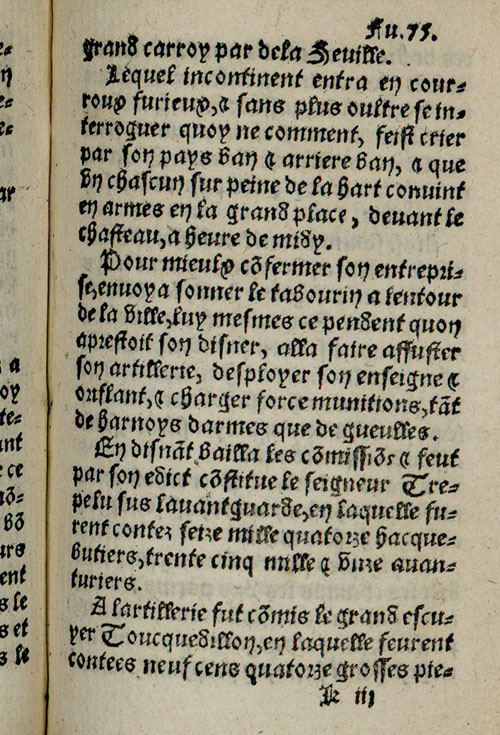 Fu.75.
grand carroy par dela Seuille.
Lequel incontinent entra en cour-
roux furieux, & sans plus oultre se in-
terroguer quoy ne comment, feist crier
par son pays ban & arriere ban, & que
vn chascun sur peine de la hart conuint
en armes en la grand place, deuant le
chasteau, a heure de midy.
Pour mieulx cõfermer son entrepri-
se, enuoya sonner le tabourin a lentour
de la ville, luy mesmes ce pendent quon
aprestoit son disner, alla faire affuster
son artillerie, desployer son enseigne &
oriflant, & charger force munitions, tãt
de harnoys darmes que de gueulles.
En disnãt bailla les cõmissiõs & feut
par son edict cõstitue le seigneur Tre-
pelu sus lauantguarde, en laquelle fu-
rent contez seize mille quatorze hacque-
butiers, trente cinq mille & vnze auan-
turiers.
A lartillerie fut cõmis le grand escu-
yer Toucquedillon, en laquelle feurent
contees neuf cens quatorze grosses pie-
K iii